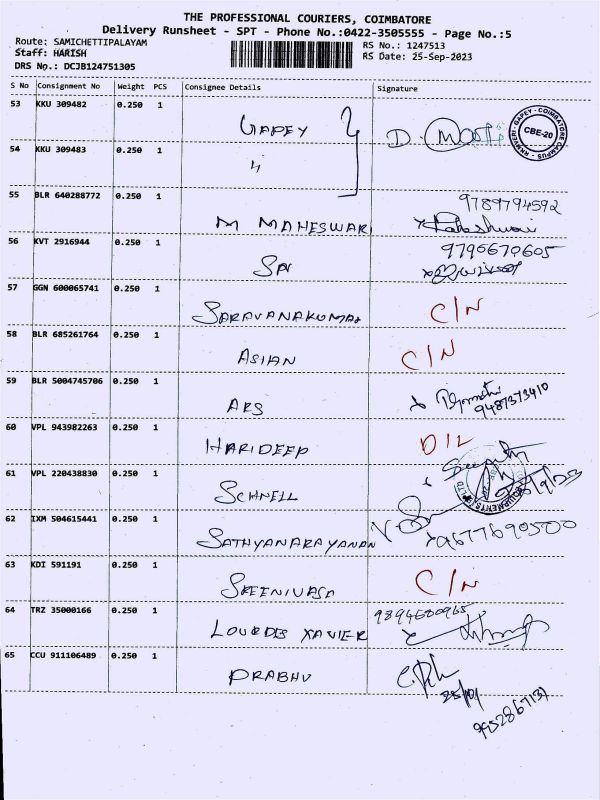 THE PROFESSIONAL COURIERS, COIMBATORE
Delivery Runsheet - SPT - Phone No.:0422-3505555 - Page No.:5
Route: SAMICHETTIPALAYAM
Staff: HARISH
DRS No.: DCJB124751305
RS No.: 1247513
RS Date: 25-Sep-2023
S No Consignment No Weight PCS Consignee Details Signature
53 KKU 309482 0.250 1
GAPEY D.
GAPEY - COIMBATORE
CBE-20
54 KKU 309483 0.250 1
55 BLR 640288772 0.250 1 9789794592
M MAHESWARI
56 KVT 2916944 0.250 1 9796670605
SRI
57 GGN 600065741 0.250 1
SARAVANAKUMAR C/N
58 BLR 685261764 0.250 1
ASIAN C/N
59 BLR 5004745706 0.250 1
ARS 9487373410
60 VPL 943982263 0.250 1
HARIDEEP D/L
61 VPL 220438830 0.250 1
SCHNELL
62 IXM 504615441 0.250 1
SATHYANARAYANAN 9677690500
63 KDI 591191 0.250 1
SREENIVASA C/N
64 TRZ 35000166 0.250 1 9894680965
LOURDES XAVIER
65 CCU 911106489 0.250 1
PRABHU
9952867137